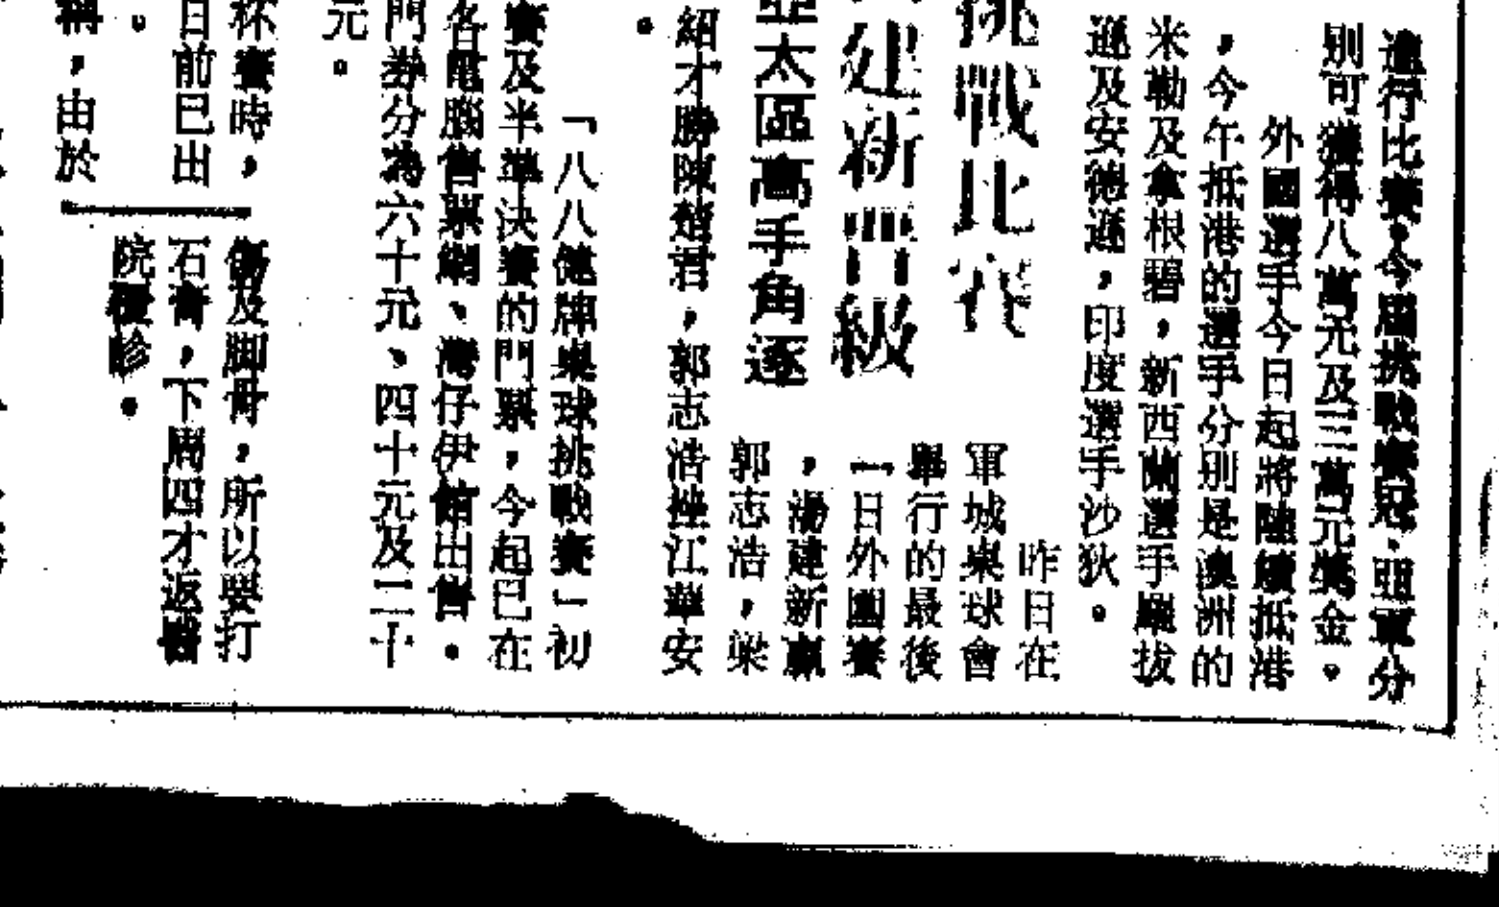 進行比賽。今屆挑戰賽冠、亞軍分
別可獲得八萬元及三萬元獎金。
外國選手今日起將陸續抵港
，今午抵港的選手分別是澳洲的
米勒及拿根碧，新西蘭選手龐拔
遜及安德遜，印度選手沙狄。
挑戰比賽
建新晋級
亞太區高手角逐
昨日在
軍城桌球會
舉行的最後
一日外圍賽
，湯建新贏
郭志浩，梁
紹才勝陳楚君，郭志浩挫江華安
。
「八八健牌桌球挑戰賽」初
賽及半準決賽的門票，今起已在
各電腦售票網、灣仔伊館出售。
門券分為六十元、四十元及二十
元。
杯賽時，
日前已出
。
稱，由於
傷及脚骨，所以要打
石膏，下周四才返醫
院覆診。